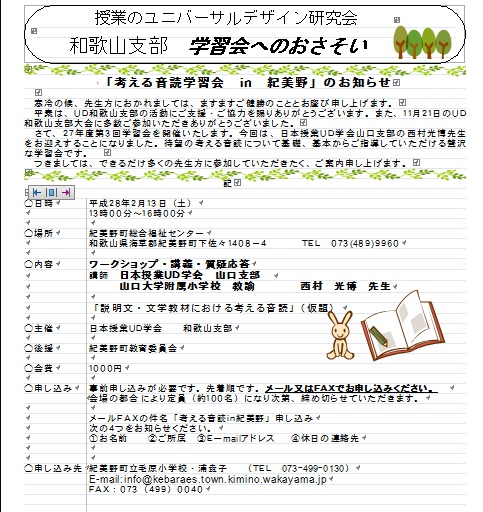 授業のユニバーサルデザイン研究会
和歌山支部 学習会へのおさそい
「考える音読学習会 in 紀美野」のお知らせ
寒冷の候、先生方におかれましては、ますますご健勝のこととお慶び申し上げます。
平素は、UD和歌山支部の活動にご支援・ご協力を賜りありがとうございます。また、11月21日のUD
和歌山支部大会に多数ご参加いただきありがとうございました。
さて、27年度第3回学習会を開催いたします。今回は、日本授業UD学会山口支部の西村光博先生
をお迎えすることになりました。待望の考える音読について基礎、基本からご指導していただける贅沢
な学習会です。
つきましては、できるだけ多くの先生方に参加していただきたく、ご案内申し上げます。
記
○日時 平成28年2月13日(土)
13時00分~16時00分
○場所 紀美野町総合福祉センター
和歌山県海草郡紀美野町下佐々1408-4 TEL 073(489)9960
○内容 ワークショップ・講義・質疑応答
講師 日本授業UD学会 山口支部
山口大学附属小学校 教諭 西村 光博 先生
「説明文・文学教材における考える音読」(仮題)
○主催 日本授業UD学会 和歌山支部
○後援 紀美野町教育委員会
○会費 1000円
○申し込み 事前申し込みが必要です。先着順です。メール又はFAXでお申し込みください。
会場の都合により定員(約100名)になり次第、締め切らせていただきます。
メールFAXの件名「考える音読in紀美野」申し込み
次の4つをお知らせください。
①お名前 ②ご所属 ③E-mailアドレス ④休日の連絡先
○申し込み先 紀美野町立毛原小学校・浦益子 (TEL 073-499-0130)
E-mail:info@kebaraes.town.kimino.wakayama.jp
FAX:073(499)0040